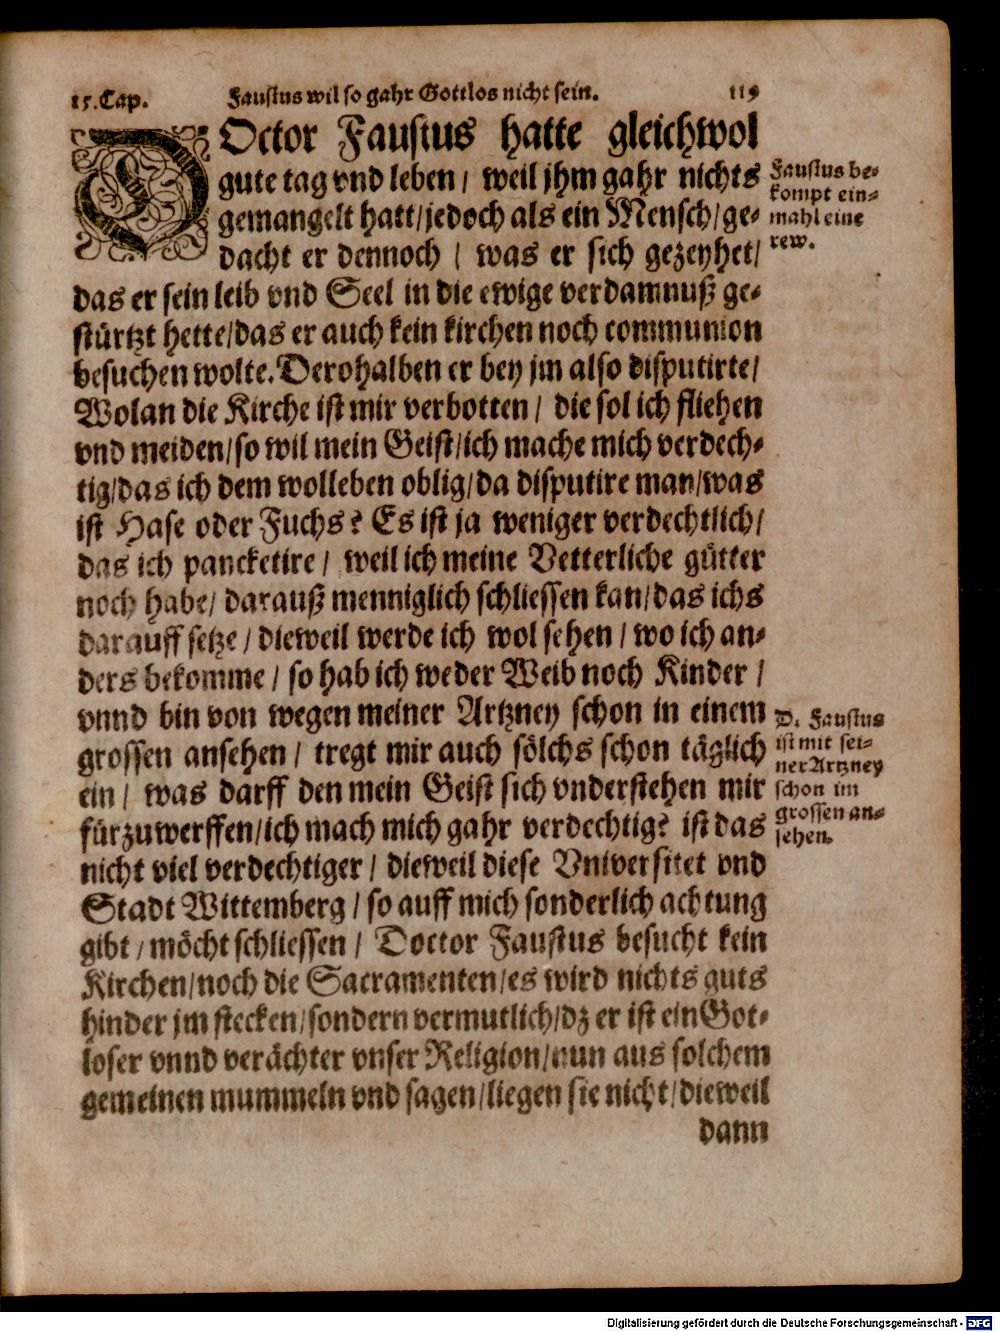 15. Cap. Faustus wil so gahr Gottlos nicht sein. 119
DOctor Faustus hatte gleichwol
gute tag vnd leben / weil jhm gahr nichts
gemangelt hatt / jedoch als ein Mensch / ge-
dacht er dennoch / was er sich gezeyhet /
das er sein leib vnd Seel in die ewige verdamnuß ge-
stürtzt hette / das er auch kein kirchen noch communion
besuchen wolte. Derohalben er bey jm also disputirte /
Wolan die Kirche ist mir verbotten / die sol ich fliehen
vnd meiden / so wil mein Geist / ich mache mich verdech-
tig / das ich dem wolleben oblig / da disputire man / was
ist Hase oder Fuchs? Es ist ja weniger verdechtlich /
das ich pancketire / weil ich meine Vetterliche gütter
noch habe / darauß menniglich schliessen kan / das ichs
darauff setze / dieweil werde ich wol sehen / wo ich an-
ders bekomme / so hab ich weder Weib noch Kinder /
vnnd bin von wegen meiner Artzney schon in einem
grossen ansehen / tregt mir auch sölchs schon täglich
ein / was darff den mein Geist sich vnderstehen mir
fürzuwerffen / ich mach mich gahr verdechtig? ist das
nicht viel verdechtiger / dieweil diese Vniversitet vnd
Stadt Wittemberg / so auff mich sonderlich achtung
gibt / möcht schliessen / Doctor Faustus besucht kein
Kirchen / noch die Sacramenten / es wird nichts guts
hinder jm stecken / sondern vermutlich / dz er ist ein Got-
loser vnnd verächter vnser Religion / nun aus solchem
gemeinen mummeln vnd sagen / liegen sie nicht / dieweil
dann
Faustus be-
kompt ein-
mahl eine
rew.
D. Faustus
ist mit sei-
ner Artzney
schon im
grossen an-
sehen.
Digitalisierung gefördert durch die Deutsche Forschungsgemeinschaft - DFG